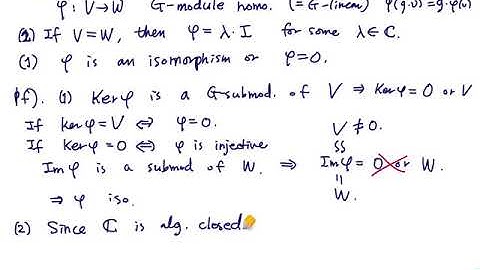 φ : V → W   G-module homo. (= G-linear)   φ(g·v)=g·φ(v)
(2) If V=W, then φ = λ·I for some λ∈ℂ.
(1) φ is an isomorphism or φ=0.
pf). (1) Ker φ is a G-submod. of V ⇒ Ker φ = 0 or V
If ker φ = V ⇔ φ=0.
V ≠ 0.
If Ker φ = 0 ⇔ φ is injective
Im φ is a submod of W. ⇒ Im φ = 0 or W.
⇒ φ iso.
W.
(2) Since ℂ is alg. closed